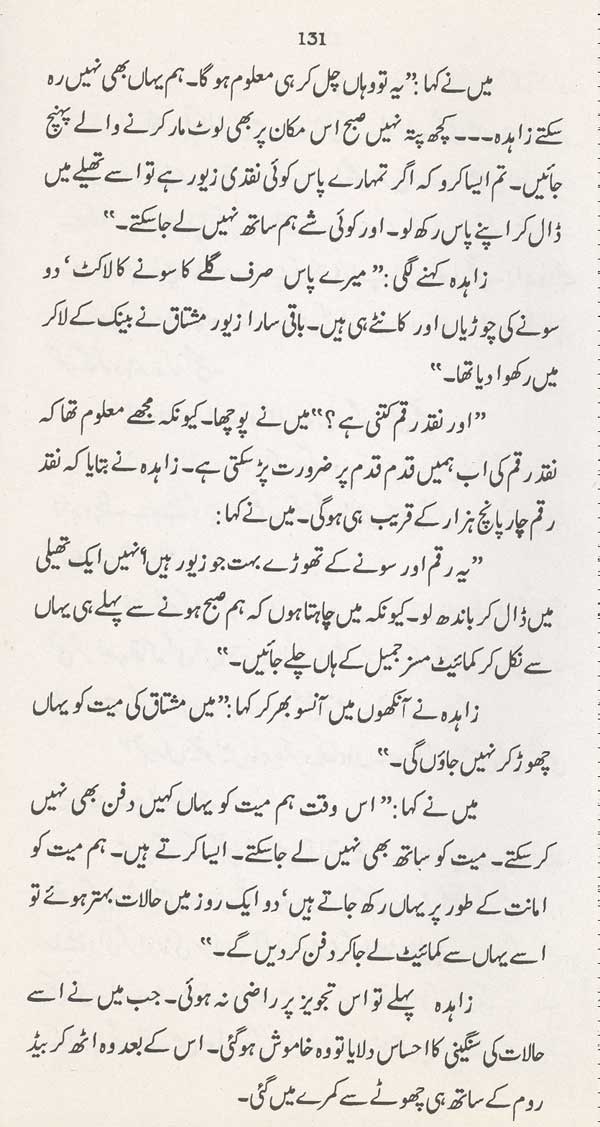 131
میں نے کہا :”یہ تو وہاں چل کر ہی معلوم ہو گا۔ ہم یہاں بھی نہیں رہ
سکتے زاہدہ۔۔۔ کچھ پتہ نہیں صبح اس مکان پر بھی لوٹ مار کرنے والے پہنچ
جائیں۔ تم ایسا کرو کہ اگر تمہارے پاس کوئی نقدی زیور ہے تو اسے تھیلے میں
ڈال کر اپنے پاس رکھ لو۔ اور کوئی شے ہم ساتھ نہیں لے جا سکتے۔“
زاہدہ کہنے لگی :” میرے پاس صرف گلے کا سونے کا لاکٹ‘ دو
سونے کی چوڑیاں اور کانٹے ہی ہیں۔ باقی سارا زیور مشتاق نے بینک کے لاکر
میں رکھوا دیا تھا۔“
”اور نقد رقم کتنی ہے ؟“ میں نے پوچھا۔ کیونکہ مجھے معلوم تھا کہ
نقد رقم کی اب ہمیں قدم قدم پر ضرورت پڑ سکتی ہے۔ زاہدہ نے بتایا کہ نقد
رقم چار پانچ ہزار کے قریب ہی ہوگی۔ میں نے کہا :
”یہ رقم اور سونے کے تھوڑے بہت جو زیور ہیں‘ انہیں ایک تھیلی
میں ڈال کر باندھ لو۔ کیونکہ میں چاہتا ہوں کہ ہم صبح ہونے سے پہلے ہی یہاں
سے نکل کر کمائیٹ مسز جمیل کے ہاں چلے جائیں۔“
زاہدہ نے آنکھوں میں آنسو بھر کر کہا :”میں مشتاق کی میت کو یہاں
چھوڑ کر نہیں جاؤں گی۔“
میں نے کہا :” اس وقت ہم میت کو یہاں کہیں دفن بھی نہیں
کر سکتے۔ میت کو ساتھ بھی نہیں لے جا سکتے۔ ایسا کرتے ہیں۔ ہم میت کو
امانت کے طور پر یہاں رکھ جاتے ہیں‘ دو ایک روز میں حالات بہتر ہوئے تو
اسے یہاں سے کمائیٹ لے جا کر دفن کر دیں گے۔“
زاہدہ پہلے تو اس تجویز پر راضی نہ ہوئی۔ جب میں نے اسے
حالات کی سنگینی کا احساس دلایا تو وہ خاموش ہو گئی۔ اس کے بعد وہ اٹھ کر بیڈ
روم کے ساتھ ہی چھوٹے سے کمرے میں گئی۔